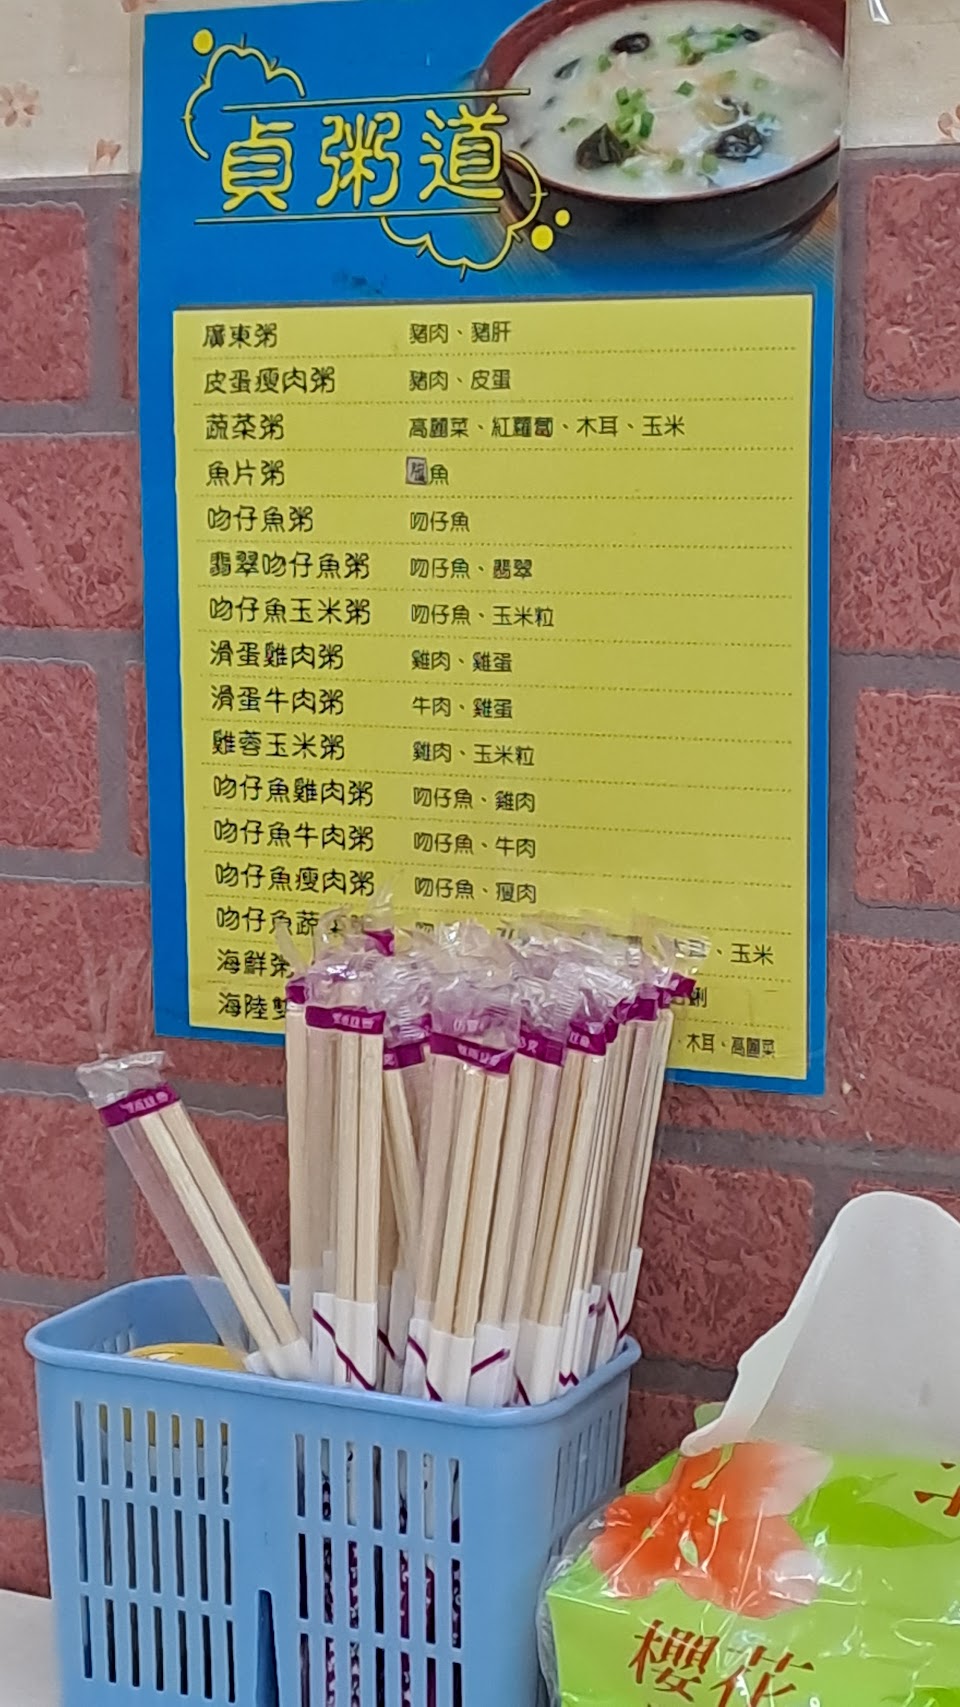 貞粥道
廣東粥 豬肉、豬肝
皮蛋瘦肉粥 豬肉、皮蛋
蔬菜粥 高麗菜、紅蘿蔔、木耳、玉米
魚片粥 魚
吻仔魚粥 吻仔魚
翡翠吻仔魚粥 吻仔魚、翡翠
吻仔魚玉米粥 吻仔魚、玉米粒
滑蛋雞肉粥 雞肉、雞蛋
滑蛋牛肉粥 牛肉、雞蛋
雞蓉玉米粥 雞肉、玉米粒
吻仔魚雞肉粥 吻仔魚、雞肉
吻仔魚牛肉粥 吻仔魚、牛肉
吻仔魚瘦肉粥 吻仔魚、瘦肉
吻仔魚蔬菜粥 、玉米
海鮮粥 蜊
海陸雙 、木耳、高麗菜
櫻花